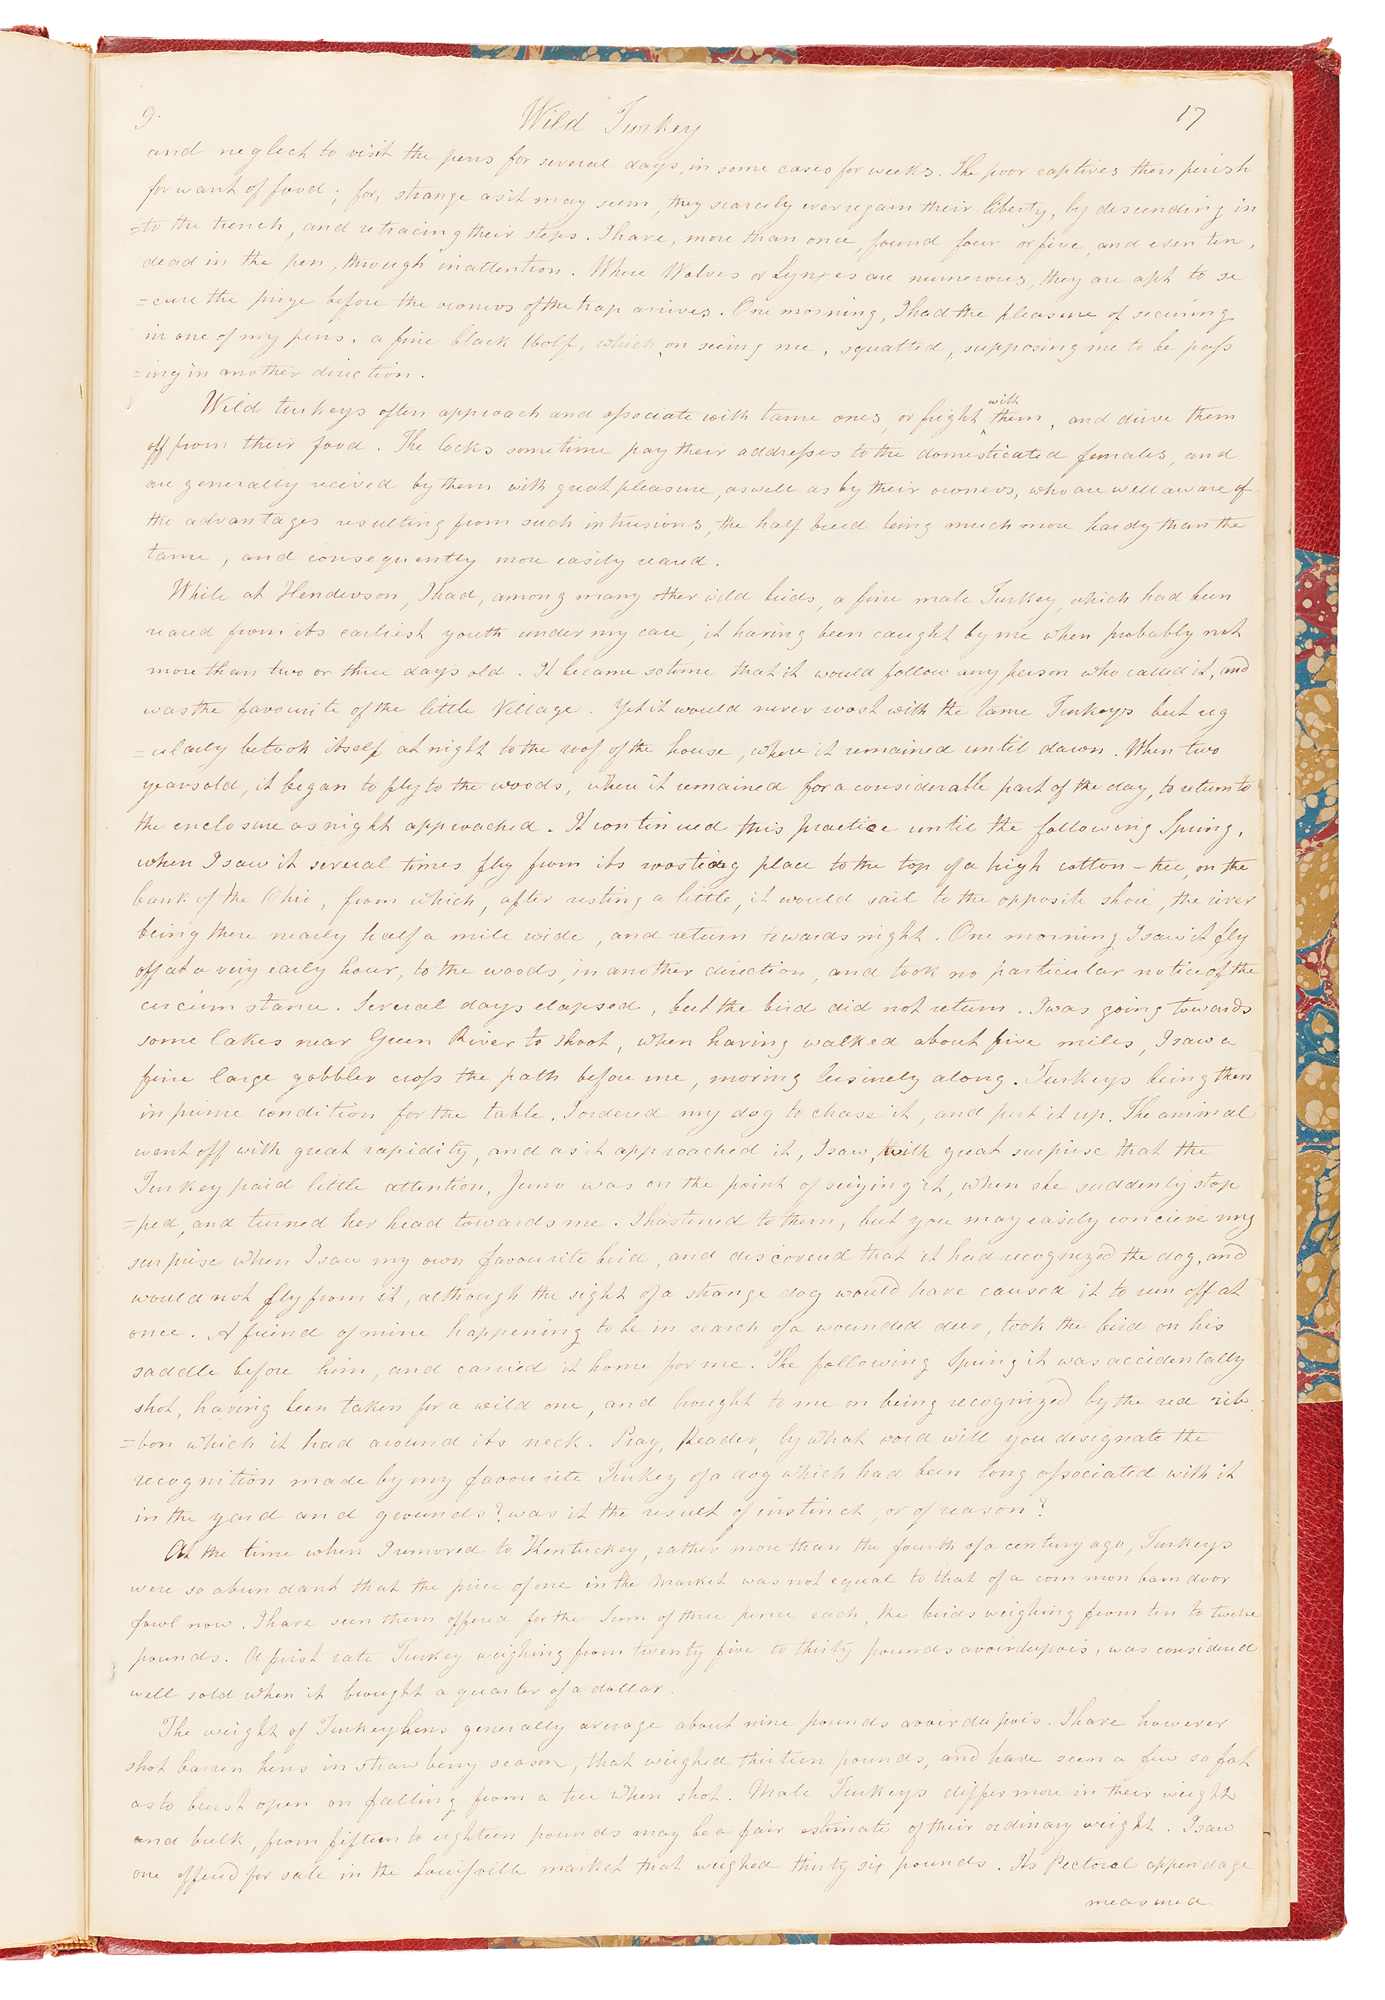 9.
Wild Turkey
17
and neglect to visit the pens for several days, in some cases for weeks. The poor captives then perish
for want of food; for, strange as it may seem, they scarcely ever regain their liberty, by descending in
=to the trench, and retracing their steps. I have, more than once, found four or five, and even ten,
dead in the pen, through inattention. Where Wolves or Lynxes are numerous, they are apt to se
=cure the prize before the owners of the trap arrives. One morning, I had the pleasure of securing
in one of my pens, a fine black Wolf, which, on seeing me, squatted, supposing me to be pass
=ing in another direction.
Wild turkeys often approach and associate with tame ones, or fight with them, and drive them
off from their food. The cocks sometime pay their addresses to the domesticated females, and
are generally recived by them with great pleasure, as well as by their owners, who are well aware of
the advantages resulting from such intrusions, the half breed being much more hardy than the
tame, and consequently more easily reared.
While at Henderson, I had, among many other wild birds, a fine male Turkey, which had been
reared from its earliest youth under my care, it having been caught by me when probably not
more than two or three days old. It became so tame that it would follow any person who called it, and
was the favourite of the little Village. Yet it would never roost with the tame Turkeys but reg
=ularly betook itself at night to the roof of the house, where it remained until dawn. When two
years old, it began to fly to the woods, where it remained for a considerable part of the day, to return to
the enclosure as night approached. It continued this practice until the following Spring,
when I saw it several times fly from its roosting place to the top of a high cotton-tree, on the
bank of the Ohio, from which, after resting a little, it would sail to the opposite shore, the river
being there nearly half a mile wide, and return towards night. One morning I saw it fly
off at a very early hour, to the woods, in another direction, and took no particular notice of the
circumstance. Several days elapsed, but the bird did not return. I was going towards
some lakes near Green River to shoot, when having walked about five miles, I saw a
fine large gobbler cross the path before me, moving leisurely along. Turkeys being then
in prime condition for the table, I ordered my dog to chase it, and put it up. The animal
went off with great rapidity, and as it approached it, I saw, with great surprise that the
Turkey paid little attention, Juno was on the point of seizing it, when she suddenly stop
=ped, and turned her head towards me. I hastened to them, but you may easily concieve my
surprise when I saw my own favourite bird, and discovered that it had recognized the dog, and
would not fly from it, although the sight of a strange dog would have caused it to run off at
once. A friend of mine happening to be in search of a wounded deer, took the bird on his
saddle before him, and carried it home for me. The following Spring it was accidentally
shot, having been taken for a wild one, and bought to me on being recognized by the red rib
=bon which it had around its neck. Pray, Reader, by what word will you designate the
recognition made by my favourite Turkey of a dog which had been long associated with it
in the yard and grounds? was it the result of instinct, or of reason?
At the time when I removed to Kentuckey, rather more than the fourth of a century ago, Turkeys
were so abundant that the price of one in the Market was not equal to that of a common barn door
fowl now. I have seen them offered for the Sum of three pence each, the birds weighing from ten to twelve
pounds. A first rate Turkey weighing from twenty five to thirty pounds avoirdupois, was considered
well sold when it brought a quarter of a dollar.
The weight of Turkey hens generally average about nine pounds avoirdupois. I have however
shot barren hens in strawberry season, that weighed thirteen pounds, and have seen a few so fat
as to burst open on falling from a tree when shot. Male Turkeys differ more in their weight
and bulk, from fifteen to eighteen pounds may be a fair estimate of their ordinary weight. I saw
one offered for sale in the Louisville market that weighed thirty six pounds. Its Pectoral appendage
measured